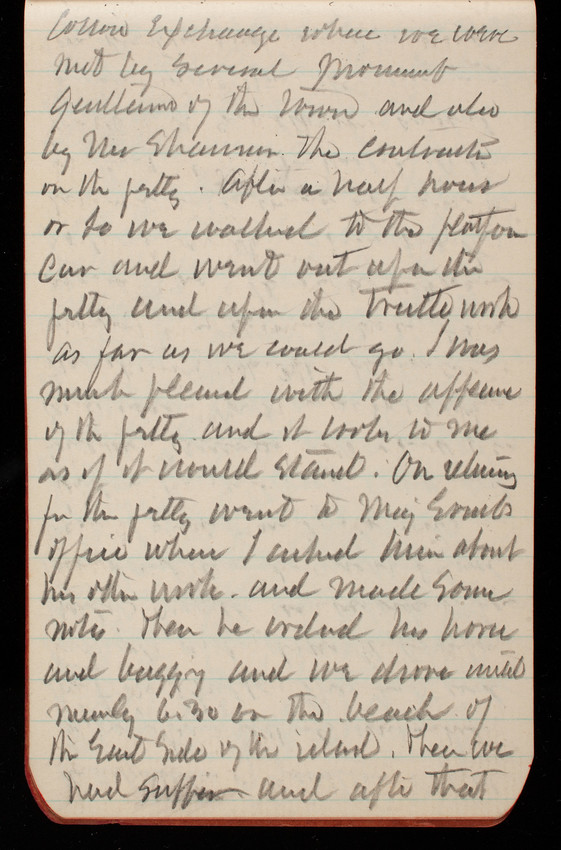 Cotton Exchange where we were
met by several prominent
Gentlemen of the town and also
by Mr the contractor
on the jetty. After a half hour
or so we walked to the platform
car and went out upon the
jetty and upon the trestle work
as far as we could go. I was
much pleased with the appearance
of the jetty and it looks to me
as if it would stand. On returning
from the jetty went to Maj
office where I asked him about
his other work. and made some
notes. Then he ordered his horse
and buggy and we drove until
nearly 6:30 on the beach of
the East Side of the island. Then we
had supper and after that